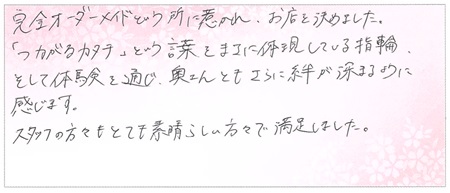 完全オーダーメイドという所に惹かれ、お店を決めました。
「つながるカタチ」という言葉をまさに体現している指輪、
そして体験を通じ、奥さんともさらに絆が深まるように
感じます。
スタッフの方々もとても素晴らしい方々で満足しました。